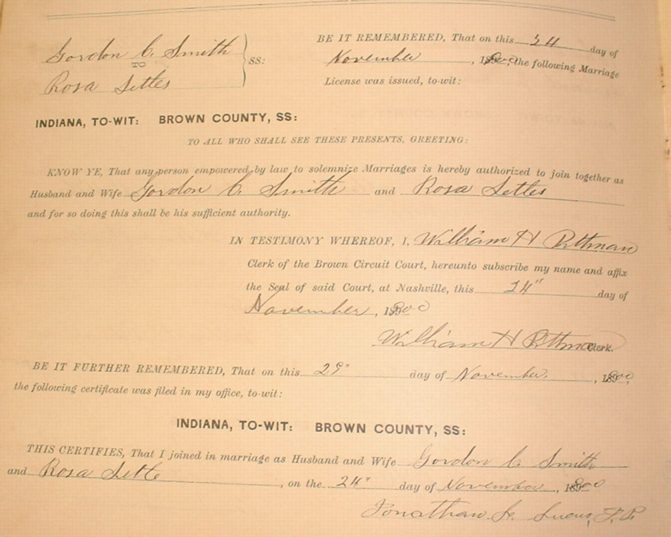 Gordon C. Smith
TO
Rosa Settes
SS:
BE IT REMEMBERED, That on this 24 day of
November, 1900, the following Marriage
License was issued, to-wit:
INDIANA, TO-WIT: BROWN COUNTY, SS:
TO ALL WHO SHALL SEE THESE PRESENTS, GREETING:
KNOW YE, That any person empowered by law to solemnize Marriages is hereby authorized to join together as
Husband and Wife Gordon C. Smith and Rosa Settes
and for so doing this shall be his sufficient authority.
IN TESTIMONY WHEREOF, I, William H Pittman
Clerk of the Brown Circuit Court, hereunto subscribe my name and affix
the Seal of said Court, at Nashville, this 24" day of
November, 1900
William H Pittman Clerk.
BE IT FURTHER REMEMBERED, That on this 29" day of November, 1900,
the following certificate was filed in my office, to-wit:
INDIANA, TO-WIT: BROWN COUNTY, SS:
THIS CERTIFIES, That I joined in marriage as Husband and Wife Gordon C. Smith
and Rosa Settle, on the 24" day of November 1900
Jonathan